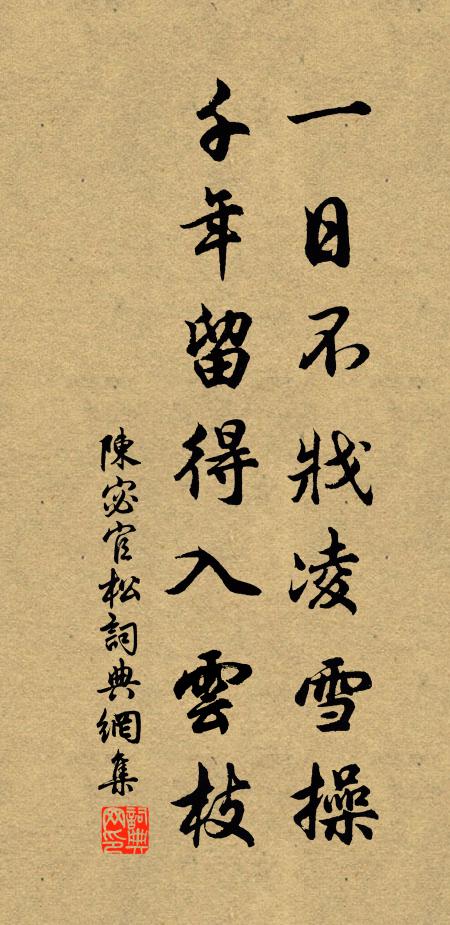 一日不戕凌雪操
千年留得入雲枝
陳宓官松詞典網集
詞典網印